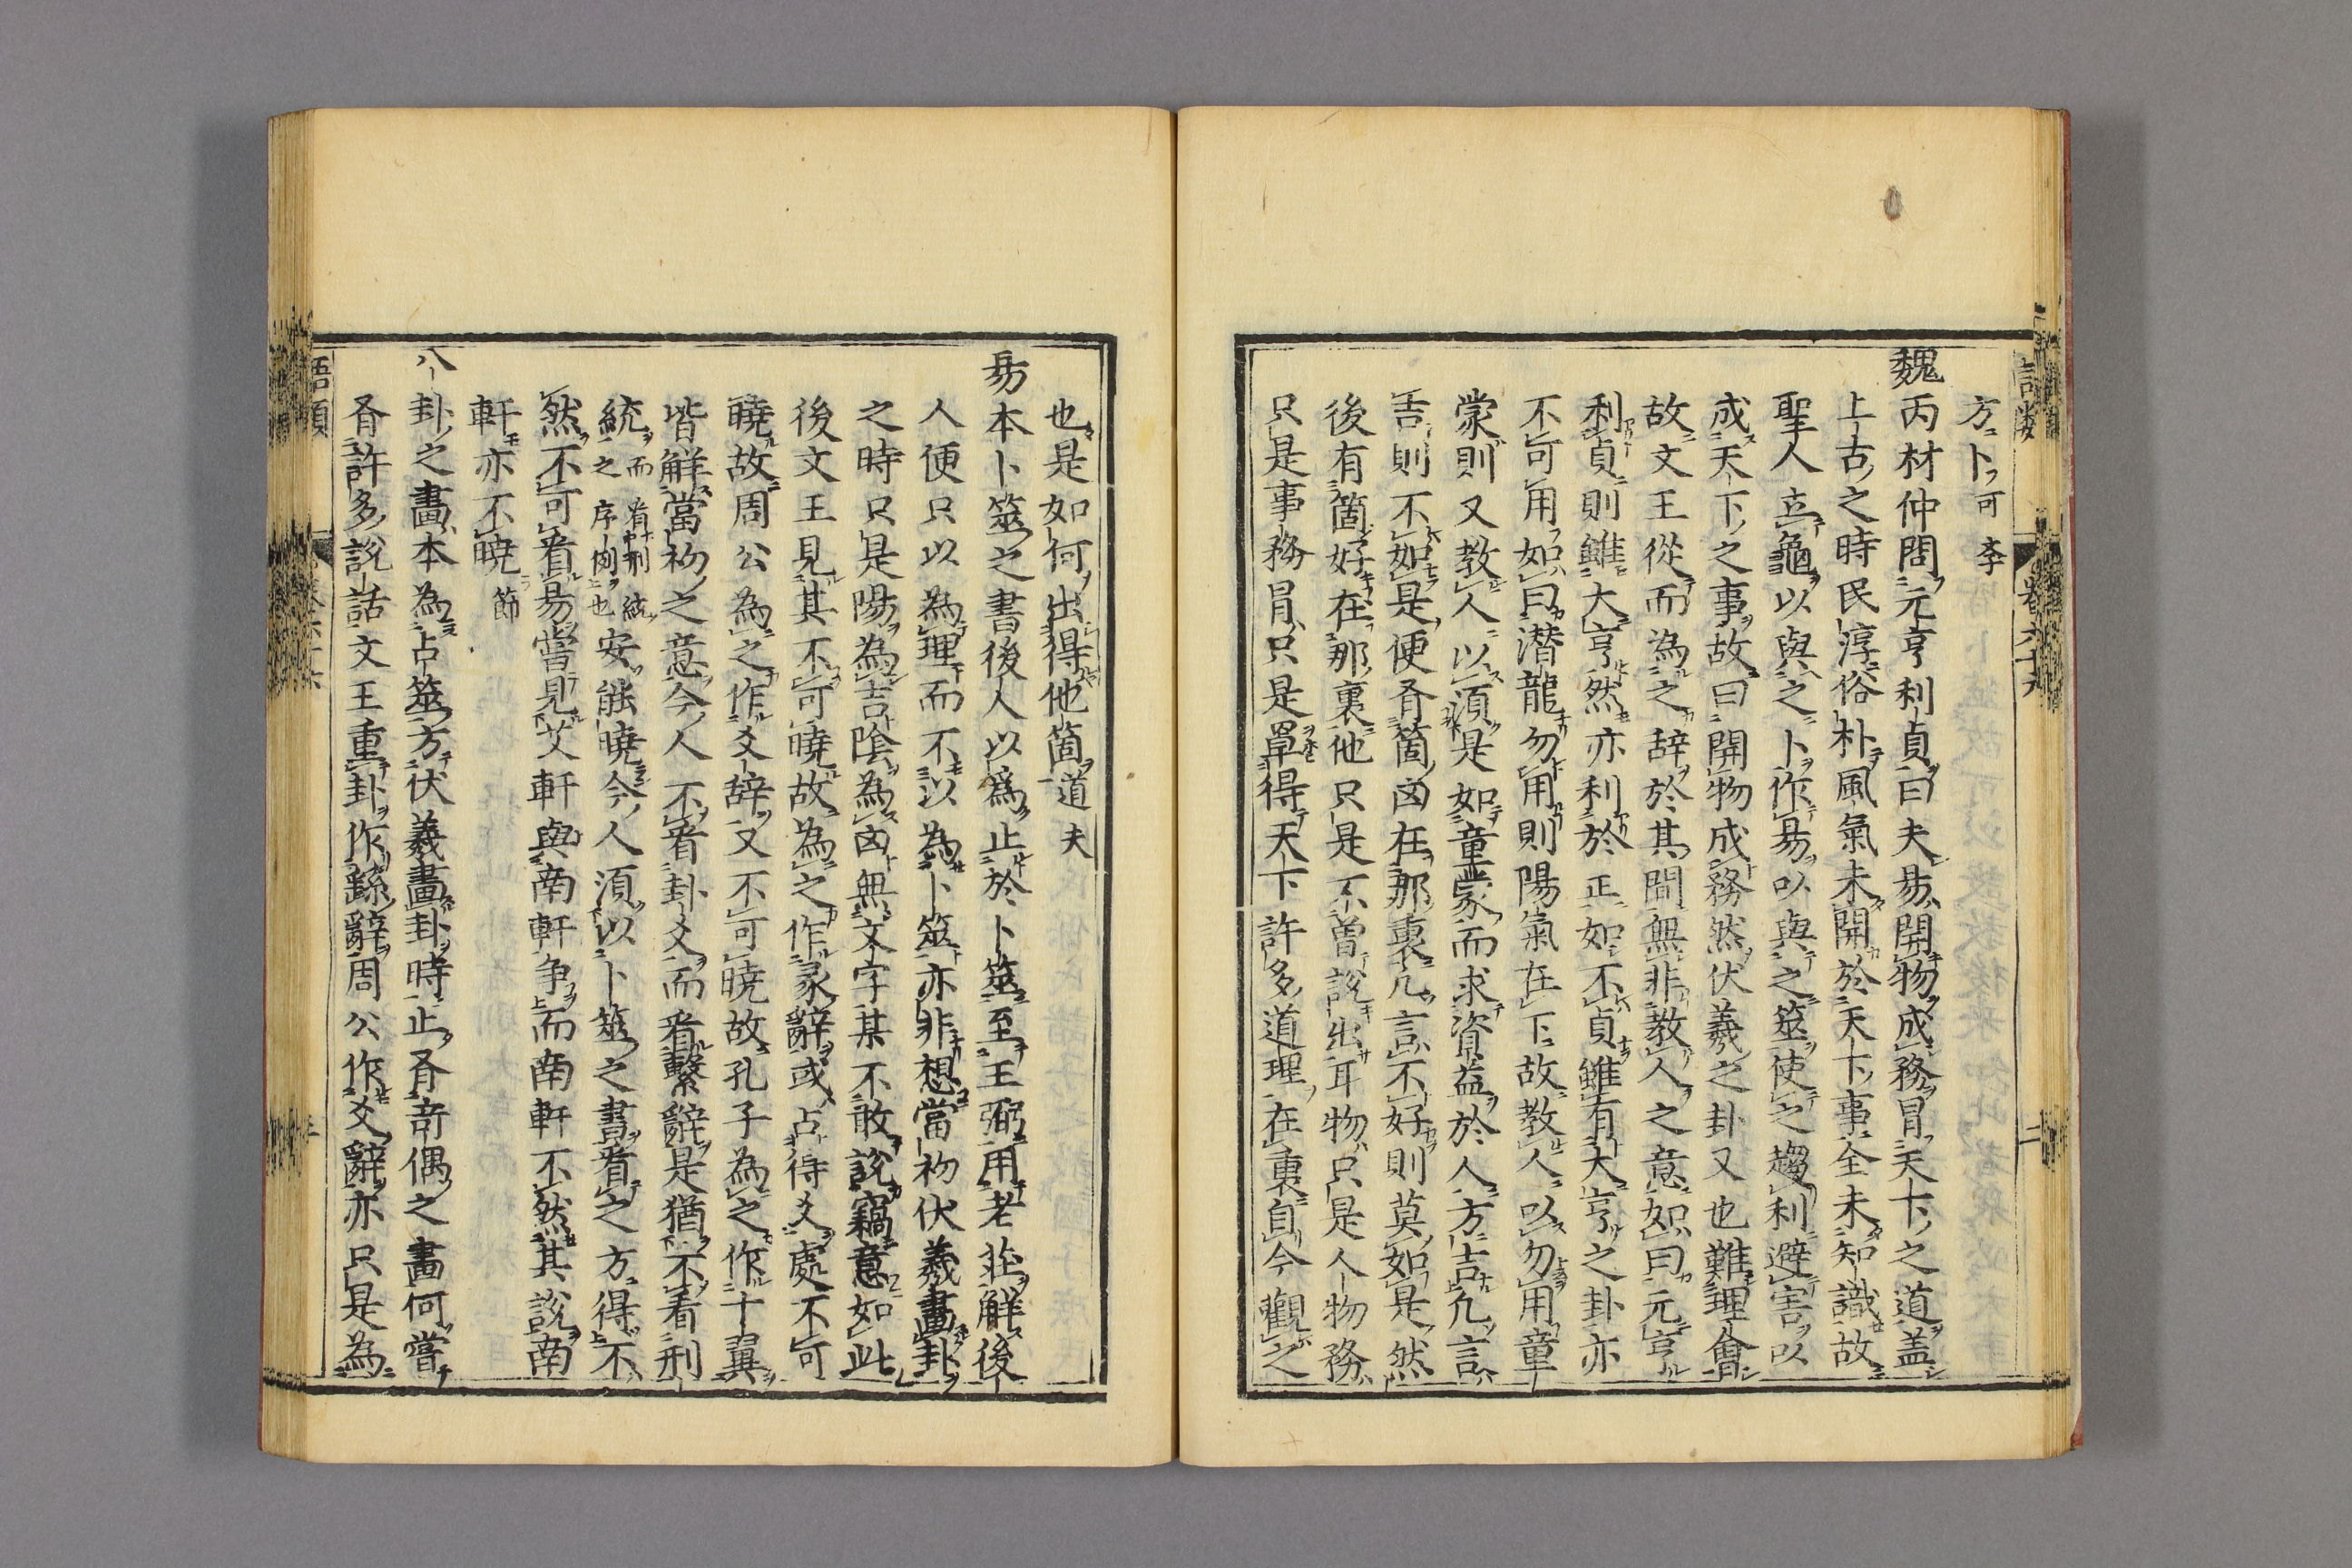 方卜可 李
魏丙材仲問元亨利貞曰夫易開物成務冒天下之道盖
上古之時民淳俗朴風氣未開於天下事全未知識故
聖人立龜以與之卜作易以與之筮使之趨利避害以
成天下之事故曰開物成務然伏羲之卦又也難理會
故文王從而為之辞於其間無非教人之意如曰元亨
利貞則雖大亨然亦利於正如不貞雖有大亨之卦亦
不可用如曰潜龍勿用則陽氣在下故教人以勿用童
蒙則又教人以須是如童蒙而求資益於人方吉凡言
吉則不如是便有箇凶在那裏凡言不好則莫如是然
後有箇好在那裏他只是不曽說出耳物只是人物務
只是事務冒只是罩得天下許多道理在裏自今觀之
也是如何出得他箇道 夫
易本卜筮之書後人以爲止於卜筮至王弼用老莊解後
人便只以為理而不以為卜筮亦非想當初伏羲畫卦
之時只是陽為吉陰為凶無文字某不敢說竊意如此
後文王見其不可曉故為之作彖辭或占得爻處不可
曉故周公為之作爻辞又不可曉故孔子為之作十翼
皆解當初之意今人不看卦爻而看繫辭是猶不看刑
統而看刑統之序例也安能曉今人須以卜筮之書看之方得不
然不可看易嘗見艾軒與南軒争而南軒不然其説南
軒亦不曉 節
八卦之畫本為占筮方伏羲畫卦時止有奇偶之畫何嘗
有許多說話文王重卦作繇辭周公作爻辭亦只是為